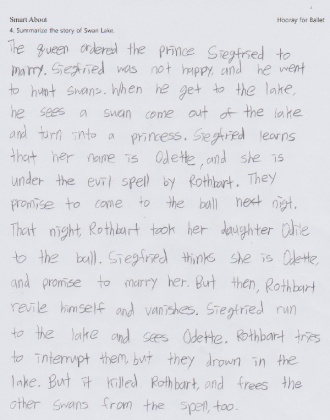 Smart About
Hooray for Ballet
4. Summarize the story of Swan Lake.
The queen ordered the prince Siegfried to
marry. Siegfried was not happy, and he went
to hunt swans. When he get to the lake,
he sees a swan come out of the lake
and turn into a princess. Siegfried learns
that her name is Odette, and she is
under the evil spell by Rothbart. They
promise to come to the ball next nigt.
That night, Rothbart took her daughter Odile
to the ball. Siegfred thinks she is Odette,
and promise to marry her. But then, Rothbart
revile himself and vanishes. Siegfried run
to the lake and sees Odette. Rothbart tries
to interrupt them, but they drown in the
lake. But it killed Rothbart, and frees the
other swans from the spell, too.